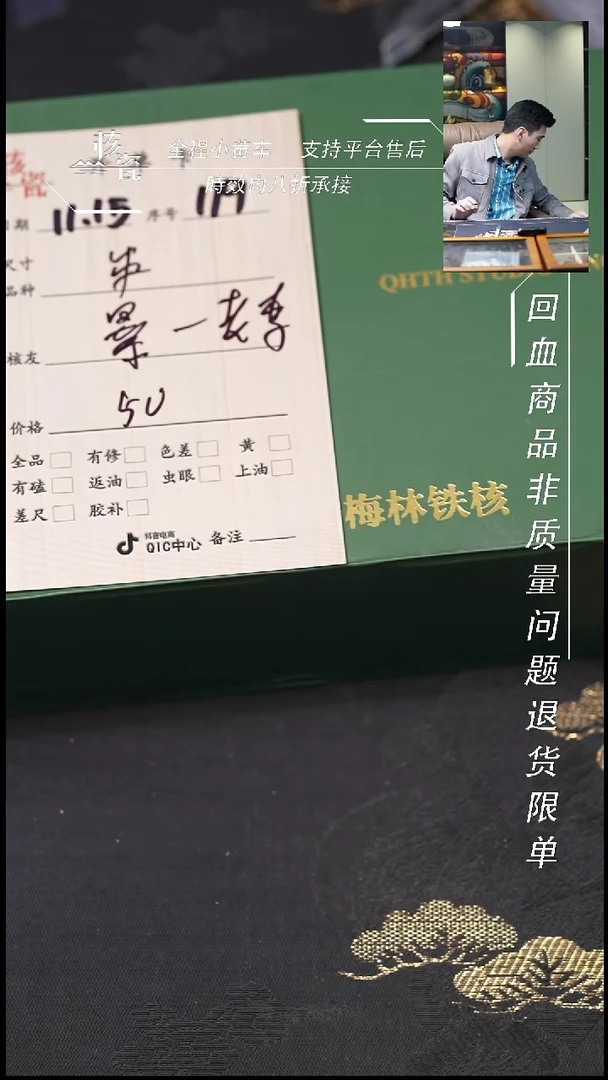 核瓷
全程小黄车 支持平台售后
時效内八折承接
核
瓷
日期 11.15 序号
尺寸
品种
核友
价格 50
全品 有修 色差 黄
有磕 返油 虫眼 上油
差尺 胶补
抖音电商
QIC中心 备注
QHTH STUDIO
梅林铁核
回血商品非质量问题退货限单